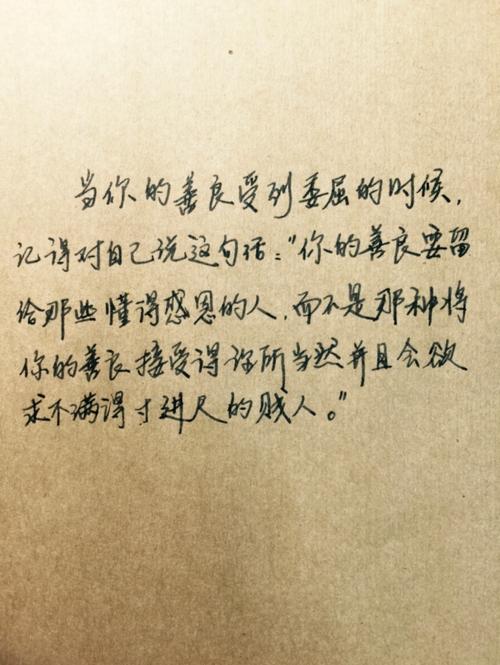 当你的善良受到委屈的时候，
记得对自己说这句话：“你的善良要留
给那些懂得感恩的人，而不是那种将
你的善良接受得理所当然并且会欲
求不满得寸进尺的贱人。”